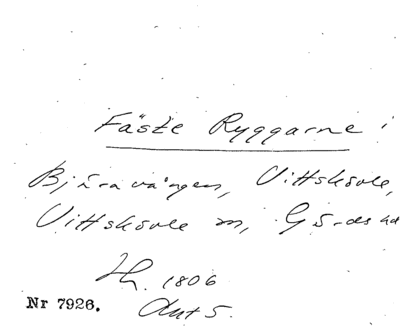 Fäste Ryggarne i
Bjäravången, Vittskövle,
Vittskövle sn, Gärds hd
1806
Nr 7926. Ant 5.